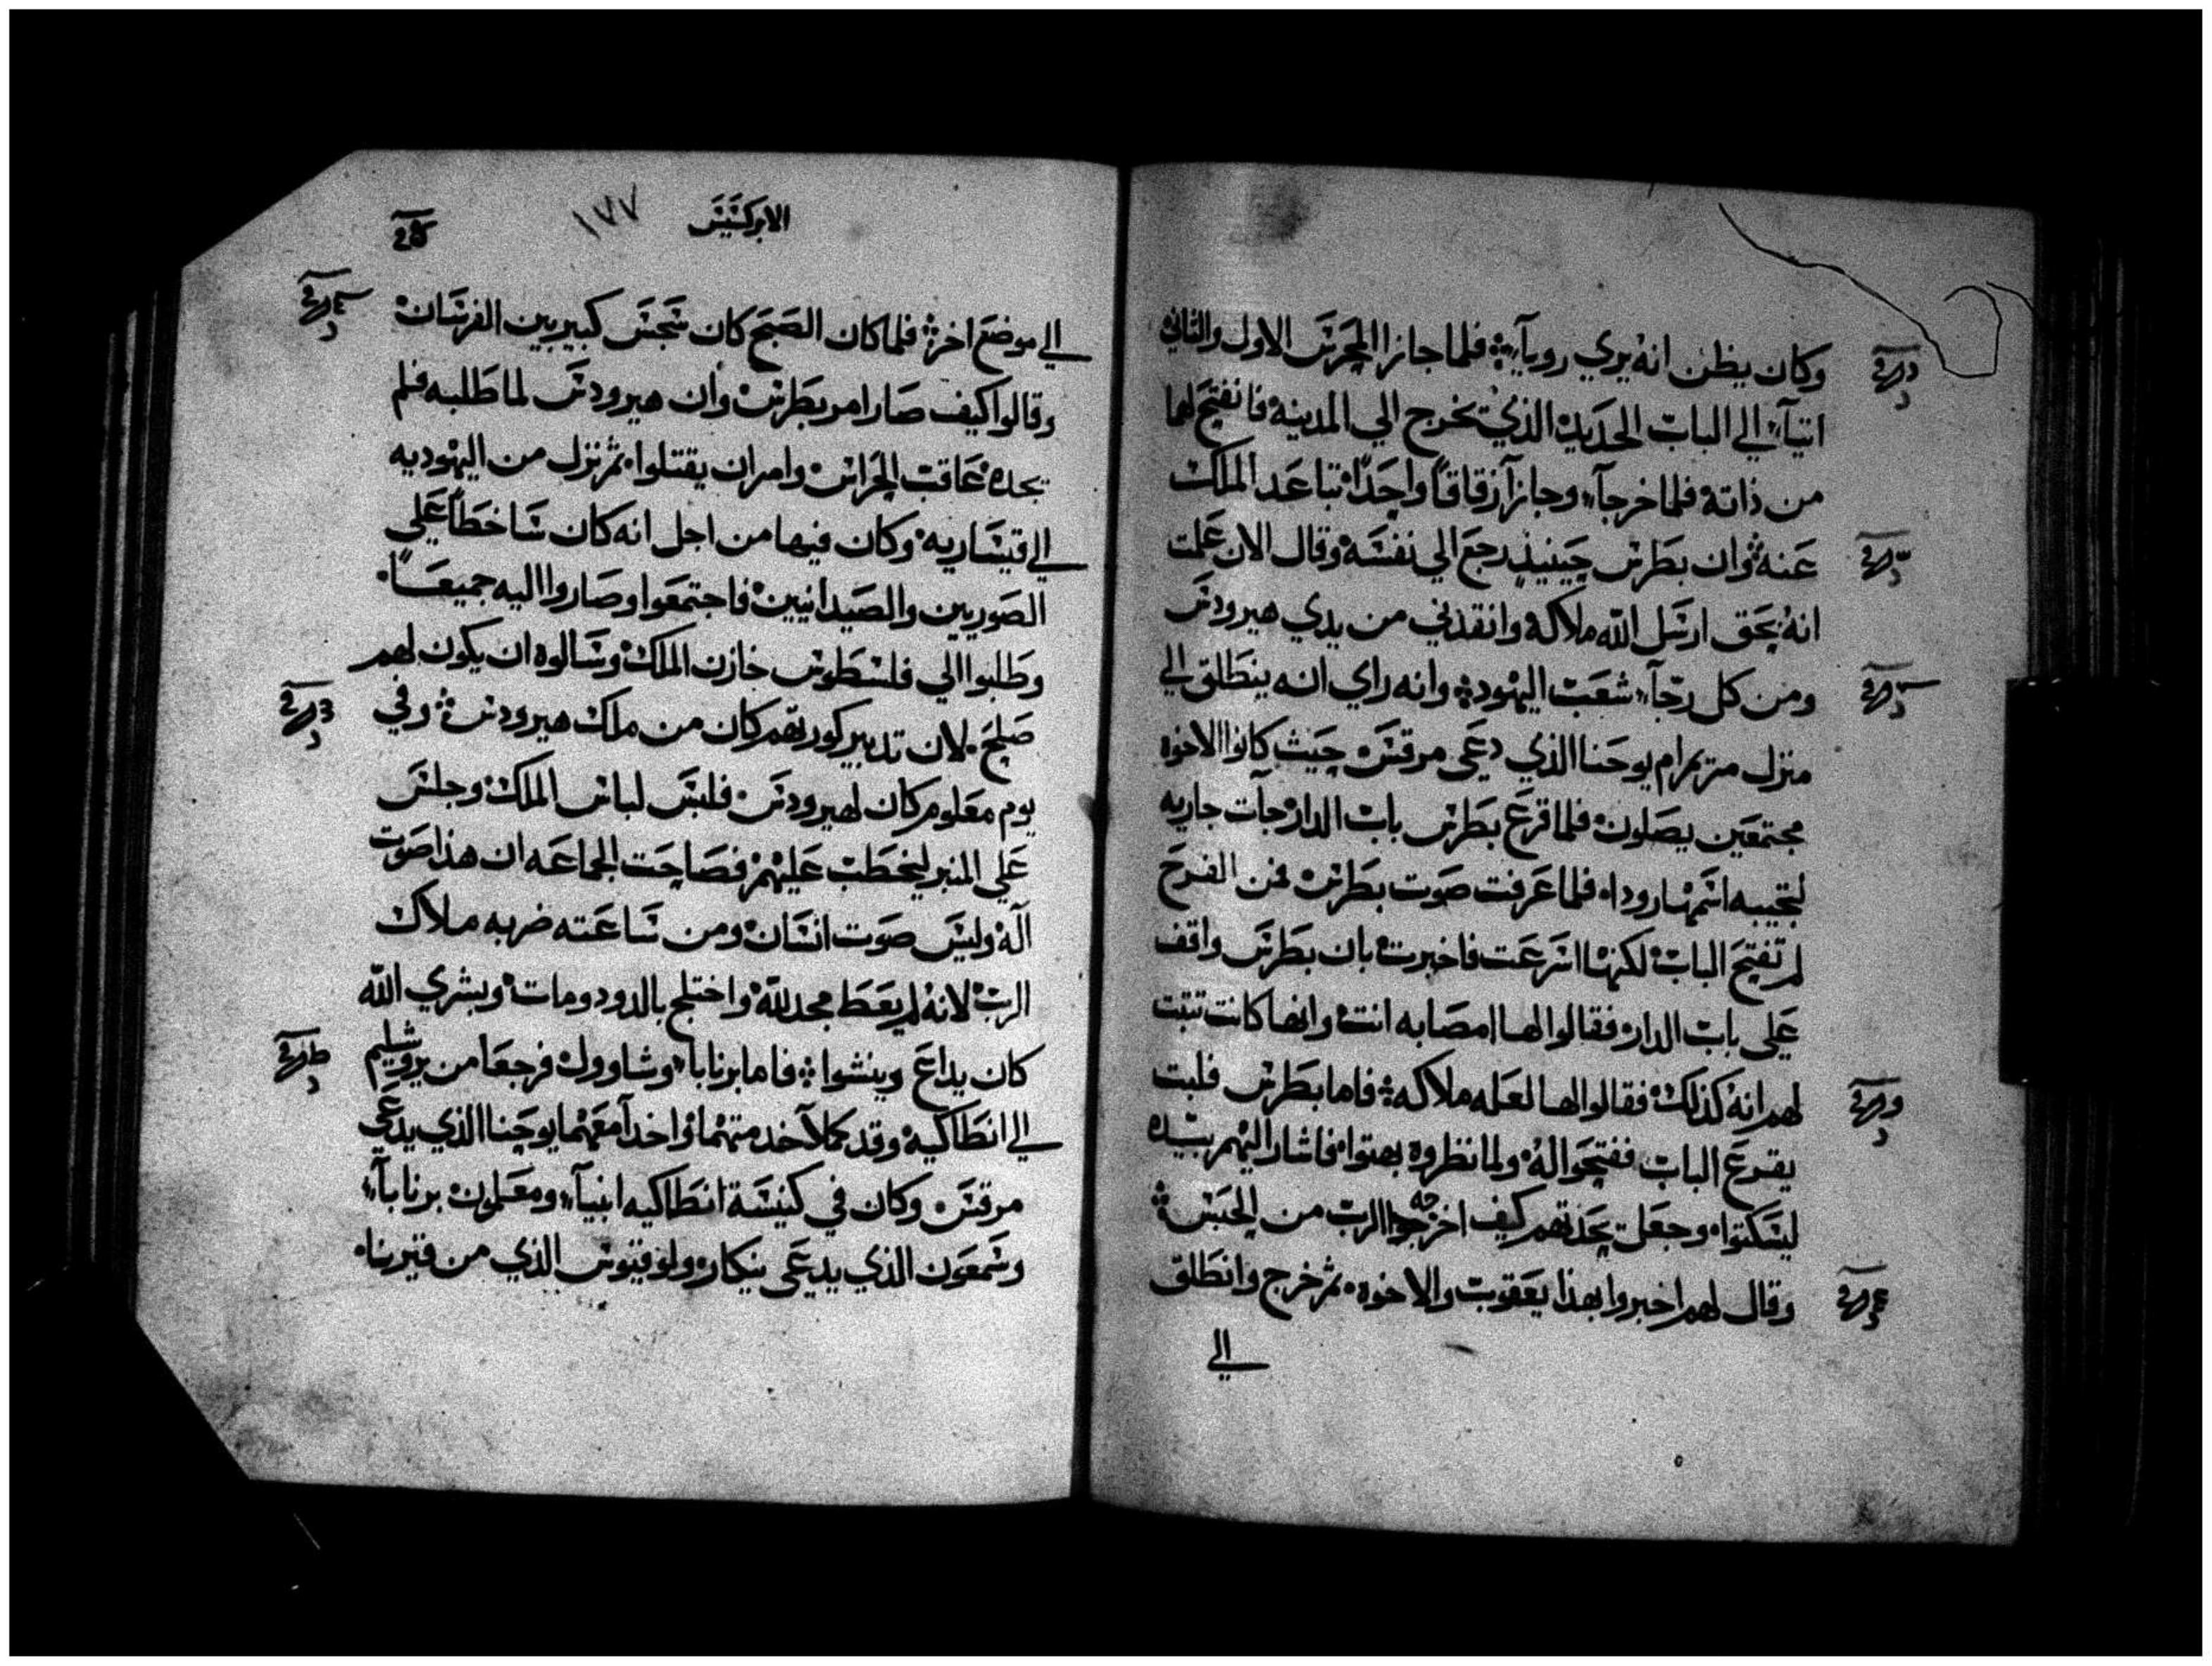 وكان يظن انه يري رويآ فلما جازا المحرس الاول والثاني
اتيآ الي الباب الحديد الذي يخرج الي المدينه فانفتح لهما
من ذاته فلما خرجآ وجازآ زقاقاً واحدًا تباعد الملاك
عنه وان بطرس حينيذٍ رجع الي نفسه وقال الان علمت
انه بحق ارسل الله ملاكه وانقذني من يدي هيرودس
ومن كل رجآ شعب اليهود وانه راي انه ينطلق الي
منزل مريم ام يوحنا الذي دعي مرقس حيث كانوا الاخوه
مجتمعين يصلون فلما قرع بطرس باب الدار جآت جاريه
لتجيبه اسمها رودا فلما عرفت صوت بطرس فمن الفرح
لم تفتح الباب لكنها اسرعت فاخبرت بان بطرس واقف
علي باب الدار فقالوا لها امصابه انت وانها كانت تثبت
لهم انه كذلك فقالوا لها لعله ملاكه فاما بطرس فلبث
يقرع الباب ففتحوا له ولما نظروه بهتوا فاشار اليهم بيده
ليسكتوا وجعل يحدثهم كيف اخرجه الرب من الحبس
وقال لهم اخبروا بهذا يعقوب والاخوه ثم خرج وانطلق
الي
الابركسيس
١٧٧
الي موضع اخر فلما كان الصبح كان سجس كبير بين الفرسان
وقالوا كيف صار امر بطرس وان هيرودس لما طلبه فلم
يجده عاقب الحراس وامر ان يقتلوا ثم نزل من اليهوديه
الي قيساريه وكان فيها من اجل انه كان ساخطاً علي
الصوريين والصيدانيين فاجتمعوا وصاروا اليه جميعاً
وطلبوا الي فلسطوس خازن الملك وسالوه ان يكون لهم
صلح لان تدبير كورتهم كان من ملك هيرودس وفي
يوم معلوم كان لهيرودس فلبس لباس الملك وجلس
علي المنبر ليخطب عليهم فصاحت الجماعه ان هذا صوت
آله وليس صوت انسان ومن ساعته ضربه ملاك
الرب لانه لم يعط مجد لله واختلج بالدود ومات وبشري الله
كان يداع وينشوا فاما برنابا وشاوول فرجعا من يروشليم
الي انطاكيه وقد كملآ خدمتهما واخدآ معهما يوحنا الذي يدعي
مرقس وكان في كنيسة انطاكيه انبيآ ومعلمون برنابآ
وسمعون الذي يدعي ينكار ولوقيوس الذي من قيرينا